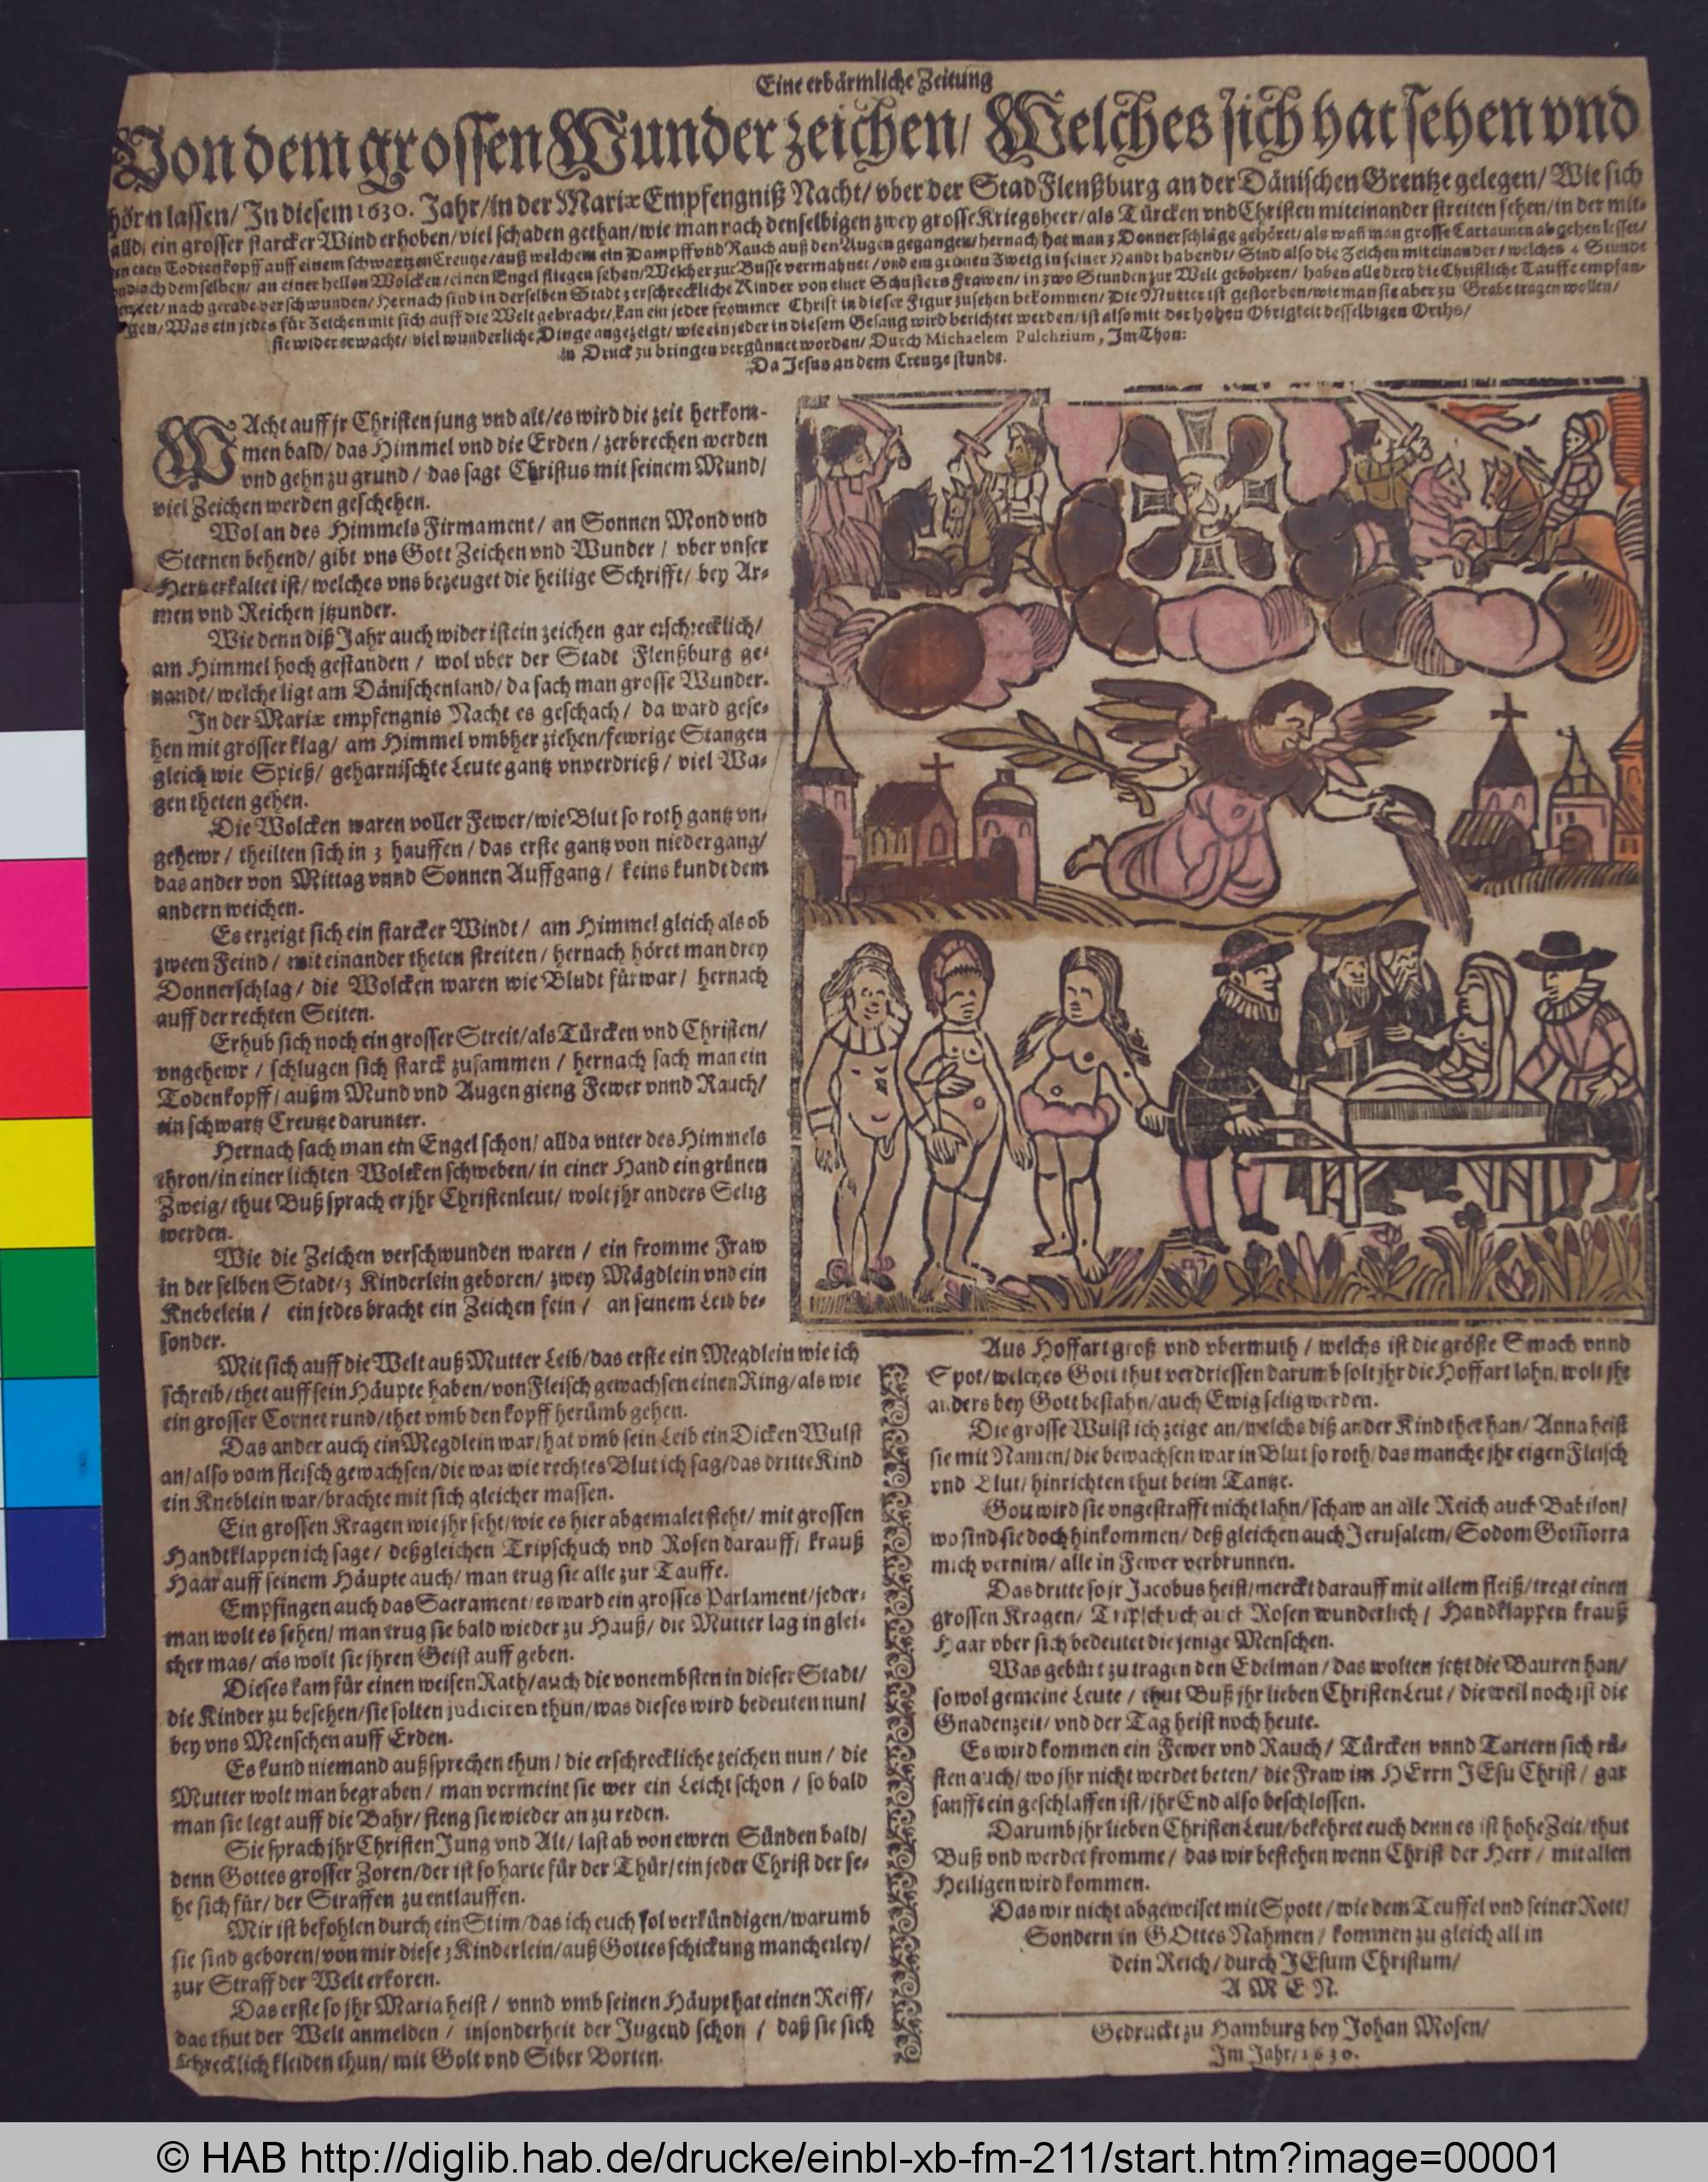 Eine erbärmliche Zeitung
Von dem grossen Wunder zeichen/ Welches sich hat sehen vnd
hörn lassen/ In diesem 1630. Jahr/ in der Mariæ Empfengniß Nacht/ vber der Stad Flenßburg an der Dänischen Grentze gelegen/ Wie sich
alldi ein grosser starcker Wind erhoben/ viel schaden gethan/ wie man nach denselbigen zwey grosse Kriegsheer/ als Türcken vnd Christen miteinander streiten sehen/ in der mit-
einen Todtenkopff auff einem schwartzen Creutze/ auß welchem ein Dampff vnd Rauch auß den Augen gegangen/ hernach hat man 3 Donnerschläge gehöret/ als wañ man grosse Cartaunen abgehen lesset/
vnd nach demselben/ an einer hellen Wolcken/ einen Engel fliegen sehen/ Welcher zur Busse vermahnet/ vnd ein grünen Zweig in seiner Handt habendt/ Sind also die Zeichen miteinander/ welches 4 Stunde
nach gerade verschwunden/ Hernach sind in derselben Stadt 3 erschreckliche Kinder von einer Schusters Frawen/ in zwo Stunden zur Welt gebohren/ haben alle drey die Christliche Tauffe empfan-
gen/ Was ein jedes für Zeichen mit sich auff die Welt gebracht/ kan ein jeder frommer Christ in dieser Figur zusehen bekommen/ Die Mutter ist gestorben/ wie man sie aber zu Grabe tragen wollen/
sie wider erwacht/ viel wunderliche Dinge angezeigt/ wie ein jeder in diesem Gesang wird berichtet werden/ ist also mit der hohen Obrigkeit desselbigen Orths/
in Druck zu bringen vergünnet worden/ Durch Michaelem Pulchrium, Im Thon:
Da Jesus an dem Creutze stunde.
WAcht auff jr Christen jung vnd alt/ es wird die zeit herkom-
men bald/ das Himmel vnd die Erden/ zerbrechen werden
vnd gehn zu grund/ das sagt Christus mit seinem Mund/
viel Zeichen werden geschehen.
Wol an des Himmels Firmament/ an Sonnen Mond vnd
Sternen behend/ gibt vns Gott Zeichen vnd Wunder/ vber vnser
Hertz erkaltet ist/ welches vns bezeuget die heilige Schrifft/ bey Ar-
men vnd Reichen jtzunder.
Wie denn diß Jahr auch wider ist ein zeichen gar erschrecklich/
am Himmel hoch gestanden/ wol vber der Stadt Flenßburg ge-
nandt/ welche ligt am Dänischenland/ da sach man grosse Wunder.
In der Mariæ empfengnis Nacht es geschach/ da ward gese-
hen mit grosser klag/ am Himmel vmbher ziehen/ fewrige Stangen
gleich wie Spieß/ geharnischte Leute gantz vnverdrieß/ viel Wa-
gen theten gehen.
Die Wolcken waren voller Fewer/ wie Blut so roth gantz vn-
gehewr/ theilten sich in 3 hauffen/ das erste gantz von niedergang/
das ander von Mittag vnnd Sonnen Auffgang/ keins kundt dem
andern weichen.
Es erzeigt sich ein starcker Windt/ am Himmel gleich als ob
zween Feind/ mit einander theten streiten/ hernach höret man drey
Donnerschlag/ die Wolcken waren wie Bludt fürwar/ hernach
auff der rechten Seiten.
Erhub sich noch ein grosser Streit/ als Türcken vnd Christen/
vngehewr/ schlugen sich starck zusammen/ hernach sach man ein
Todenkopff/ außm Mund vnd Augen gieng Fewer vnnd Rauch/
ein schwartz Creutze darunter.
Hernach sach man ein Engel schon/ allda vnter des Himmels
thron/ in einer lichten Wolcken schweben/ in einer Hand ein grünen
Zweig/ thut Buß sprach er jhr Christenleut/ wolt jhr anders Selig
werden.
Wie die Zeichen verschwunden waren/ ein fromme Fraw
in der selben Stadt/ 3 Kinderlein geboren/ zwey Mägdlein vnd ein
Knebelein/ ein jedes bracht ein Zeichen fein/ an seinem Leib be-
sonder.
Mit sich auff die Welt auß Mutter Leib/ das erste ein Megdlein wie ich
schreib/ thet auff sein Häupte haben/ von Fleisch gewachsen einen Ring/ als wie
ein grosser Cornet rund/ thet vmb den kopff herümb gehen.
Das ander auch ein Megdlein war/ hat vmb sein Leib ein Dicken Wulst
an/ also vom fleisch gewachsen/ die war wie rechtes Blut ich sag/ das dritte Kind
ein Kneblein war/ brachte mit sich gleicher massen.
Ein grossen Kragen wie jhr seht/ wie es hier abgemalet steht/ mit grossen
Handtklappen ich sage/ deßgleichen Tripschuch vnd Rosen darauff/ krauß
Haar auff seinem Häupte auch/ man trug sie alle zur Tauffe.
Empfingen auch das Sacrament/ es ward ein grosses Parlament/ jeder-
man wolt es sehen/ man trug sie bald wieder zu Hauß/ die Mutter lag in glei-
cher mas/ als wolt sie jhren Geist auff geben.
Dieses kam für einen weisen Rath/ auch die vonembsten in dieser Stadt/
die Kinder zu besehen/ sie solten judiciren thun/ was dieses wird bedeuten nun/
bey vns Menschen auff Erden.
Es kund niemand außsprechen thun/ die erschreckliche zeichen nun/ die
Mutter wolt man begraben/ man vermeint sie wer ein Leicht schon/ so bald
man sie legt auff die Bahr/ fieng sie wieder an zu reden.
Sie sprach jhr Christen Jung vnd Alt/ last ab von ewren Sünden bald/
denn Gottes grosser Zoren/ der ist so harte für der Thür/ ein jeder Christ der se-
he sich für/ der Straffen zu entlauffen.
Mir ist befohlen durch ein Stim/ das ich euch sol verkündigen/ warumb
sie sind geboren/ von mir diese 3 Kinderlein/ auß Gottes schickung mancherley/
zur Straff der Welt erkoren.
Das erste so jhr Maria heist/ vnnd vmb seinen Häupt hat einen Reiff/
das thut der Welt anmelden/ insonderheit der Jugend schon/ daß sie sich
schrecklich kleiden thun/ mit Golt vnd Silber Borten.
Aus Hoffart groß vnd vbermuth/ welchs ist die gröste Smach vnnd
Spot/ welches Gott thut verdriessen darumb solt jhr die Hoffart lahn/ wolt jhr
anders bey Gott bestahn/ auch Ewig selig werden.
Die grosse Wulst ich zeige an/ welchs diß ander Kind thet han/ Anna heist
sie mit Namen/ die bewachsen war in Blut so roth/ das manche jhr eigen Fleisch
vnd Blut/ hinrichten thut beim Tantze.
Gott wird sie vngestrafft nicht lahn/ schaw an alle Reich auch Babilon/
wo sind sie doch hinkommen/ deß gleichen auch Jerusalem/ Sodom Gom̃orra
mich vernim/ alle in Fewer verbrunnen.
Das dritte so jr Jacobus heist/ merckt darauff mit allem fleiß/ tregt einen
grossen Kragen/ Tripschuch auch Rosen wunderlich/ Handklappen krauß
Haar vber sich bedeutet die jenige Menschen.
Was gebürt zu tragen den Edelman/ das wolten jetzt die Bauren han/
so wol gemeine Leute/ thut Buß jhr lieben Christen Leut/ dieweil noch ist die
Gnadenzeit/ vnd der Tag heist noch heute.
Es wird kommen ein Fewer vnd Rauch/ Türcken vnnd Tartern sich rü-
sten auch/ wo jhr nicht werdet beten/ die Fraw im HErrn JEsu Christ/ gar
sanfft eingeschlaffen ist/ jhr End also beschlossen.
Darumb jhr lieben Christen Leut/ bekehret euch denn es ist hohe Zeit/ thut
Buß vnd werdet fromme/ das wir bestehen wenn Christ der Herr/ mit allen
Heiligen wird kommen.
Das wir nicht abgeweiset mit Spott/ wie dem Teuffel vnd seiner Rott/
Sondern in GOttes Nahmen/ kommen zu gleich all in
dein Reich/ durch JEsum Christum/
A M E N.
Gedruckt zu Hamburg bey Johan Mosen/
Im Jahr/ 1630.
© HAB http://diglib.hab.de/drucke/einbl-xb-fm-211/start.htm?image=00001